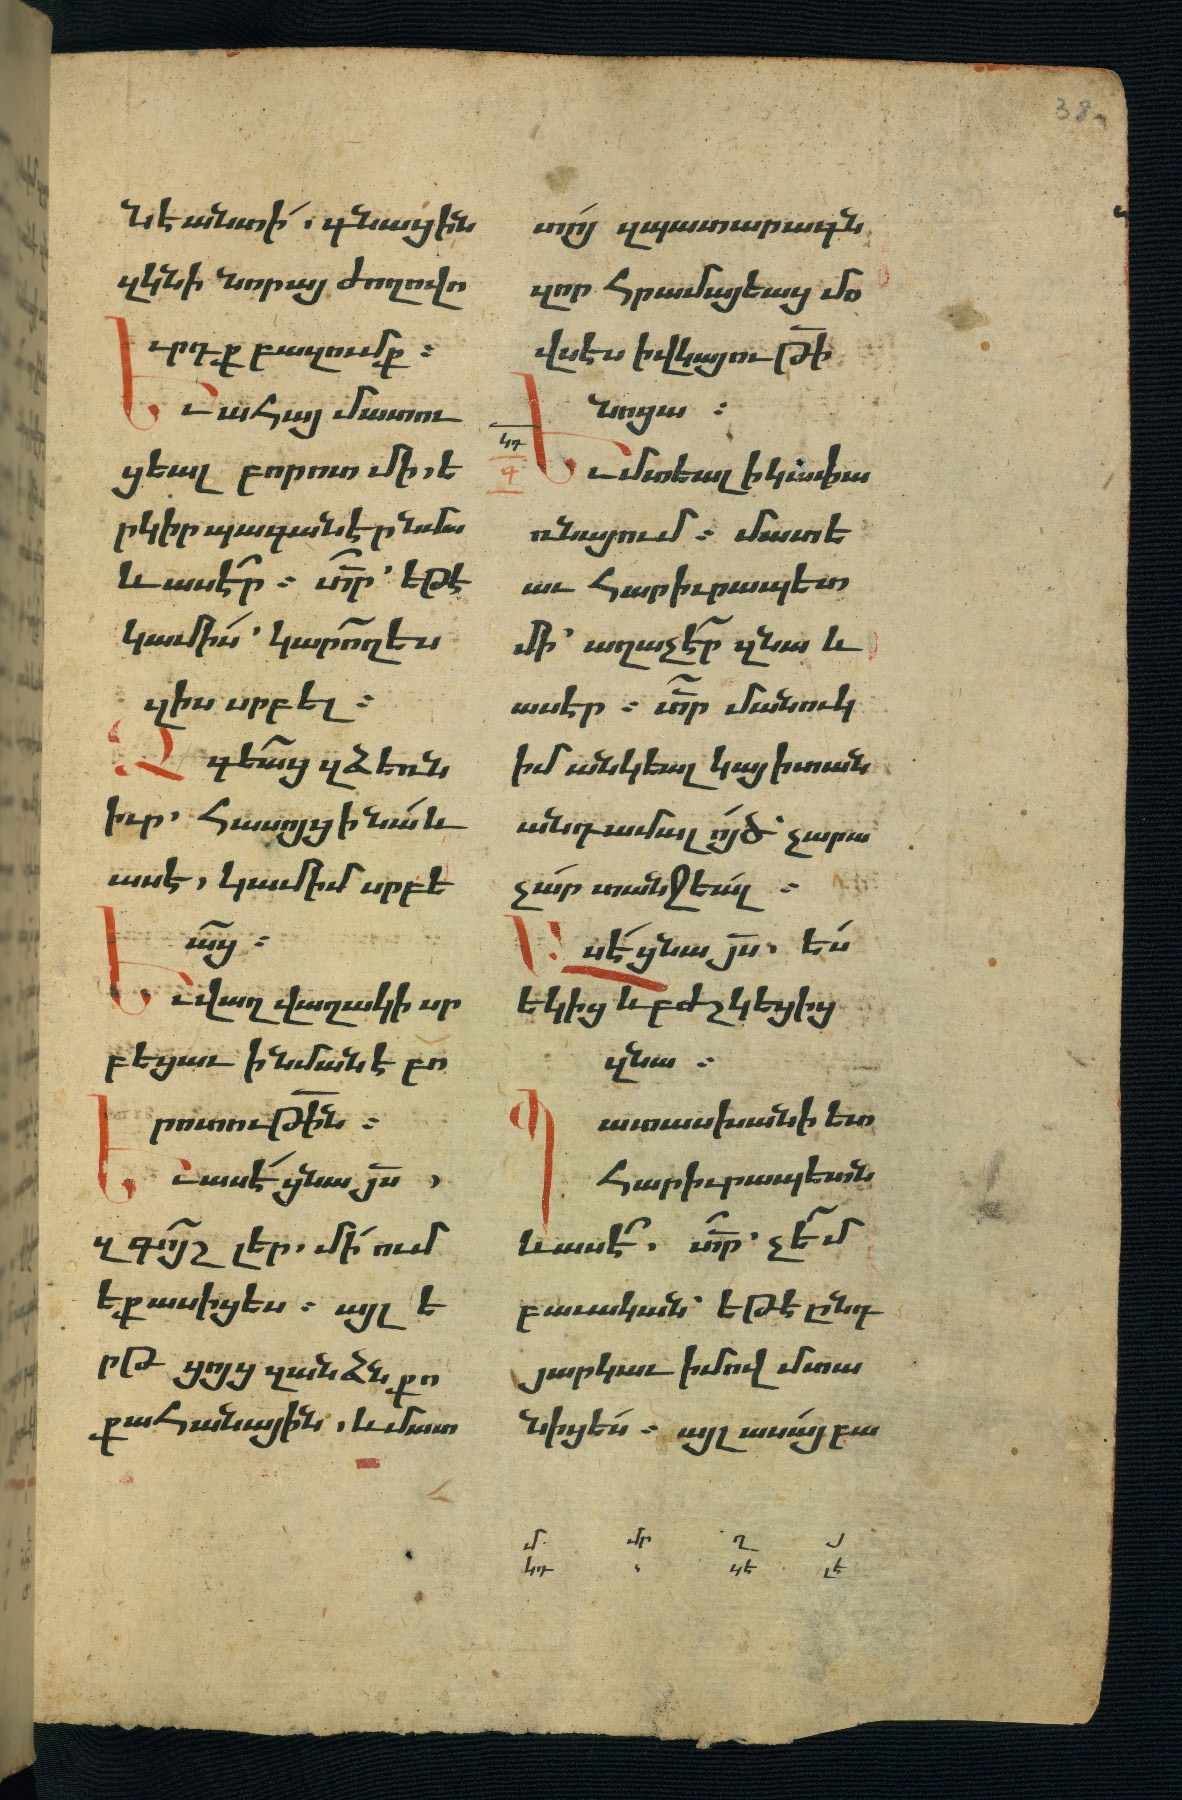 38a
նէ անտի՛, գնացին
զկնի նորայ ժողովո
ւրդք բազումք ։
Եւ ահայ մատու
ցեալ բորոտ մի, ե
րկիր պագանէր նմա
և ասէ՜ր ։ տ̅ր՝ եթէ
կամիս՝ կարօ՜ղ ես
զիս սրբել ։
Ձգեա՜ց զձեռն
իւր՝ հասոյց ի նա՛ և
ասէ, կամիմ սրբե
ա՜ց ։
Եւ վաղվաղակի սր
բեցաւ ինմանէ բո
րոտութի̅ն ։
Եւ ասէ՛ ցնա յ̅ս ,
զգո՜յշ լեր, մի՛ ում
եք ասիցես ։ այլ ե
րթ ցոյց զանձն քո
քահանային, և մատ
ո՛յ զպատարագն
զոր հրամայեաց մօ
վսէս ի վկայութի̅
նոցա ։
կդ
գ
Եւ մտեալ ի կափա
ռնայում ։ մատե
աւ հարիւրապետ
մի՝ աղաչէ՜ր զնա և
ասէր ։ տ̅ր մանուկ
իմ անկեալ կայ ի տան
անդամալո՛յծ՝ չարա
չա՛ր տանջեա՛լ ։
Ասէ՛ ցնա յ̅ս, ե՛ս
եկից և բժշկեցից
զնա ։
Պատասխանի ետ
հարիւրապետն
և ասէ՜, տ̅ր՝ չե՜մ
բաւական՝ եթէ ընդ
յարկաւ իմով մտա
նիցե՛ս ։ այլ ասա՛յ բա
մ մր ղ յ
կդ , կէ լէ